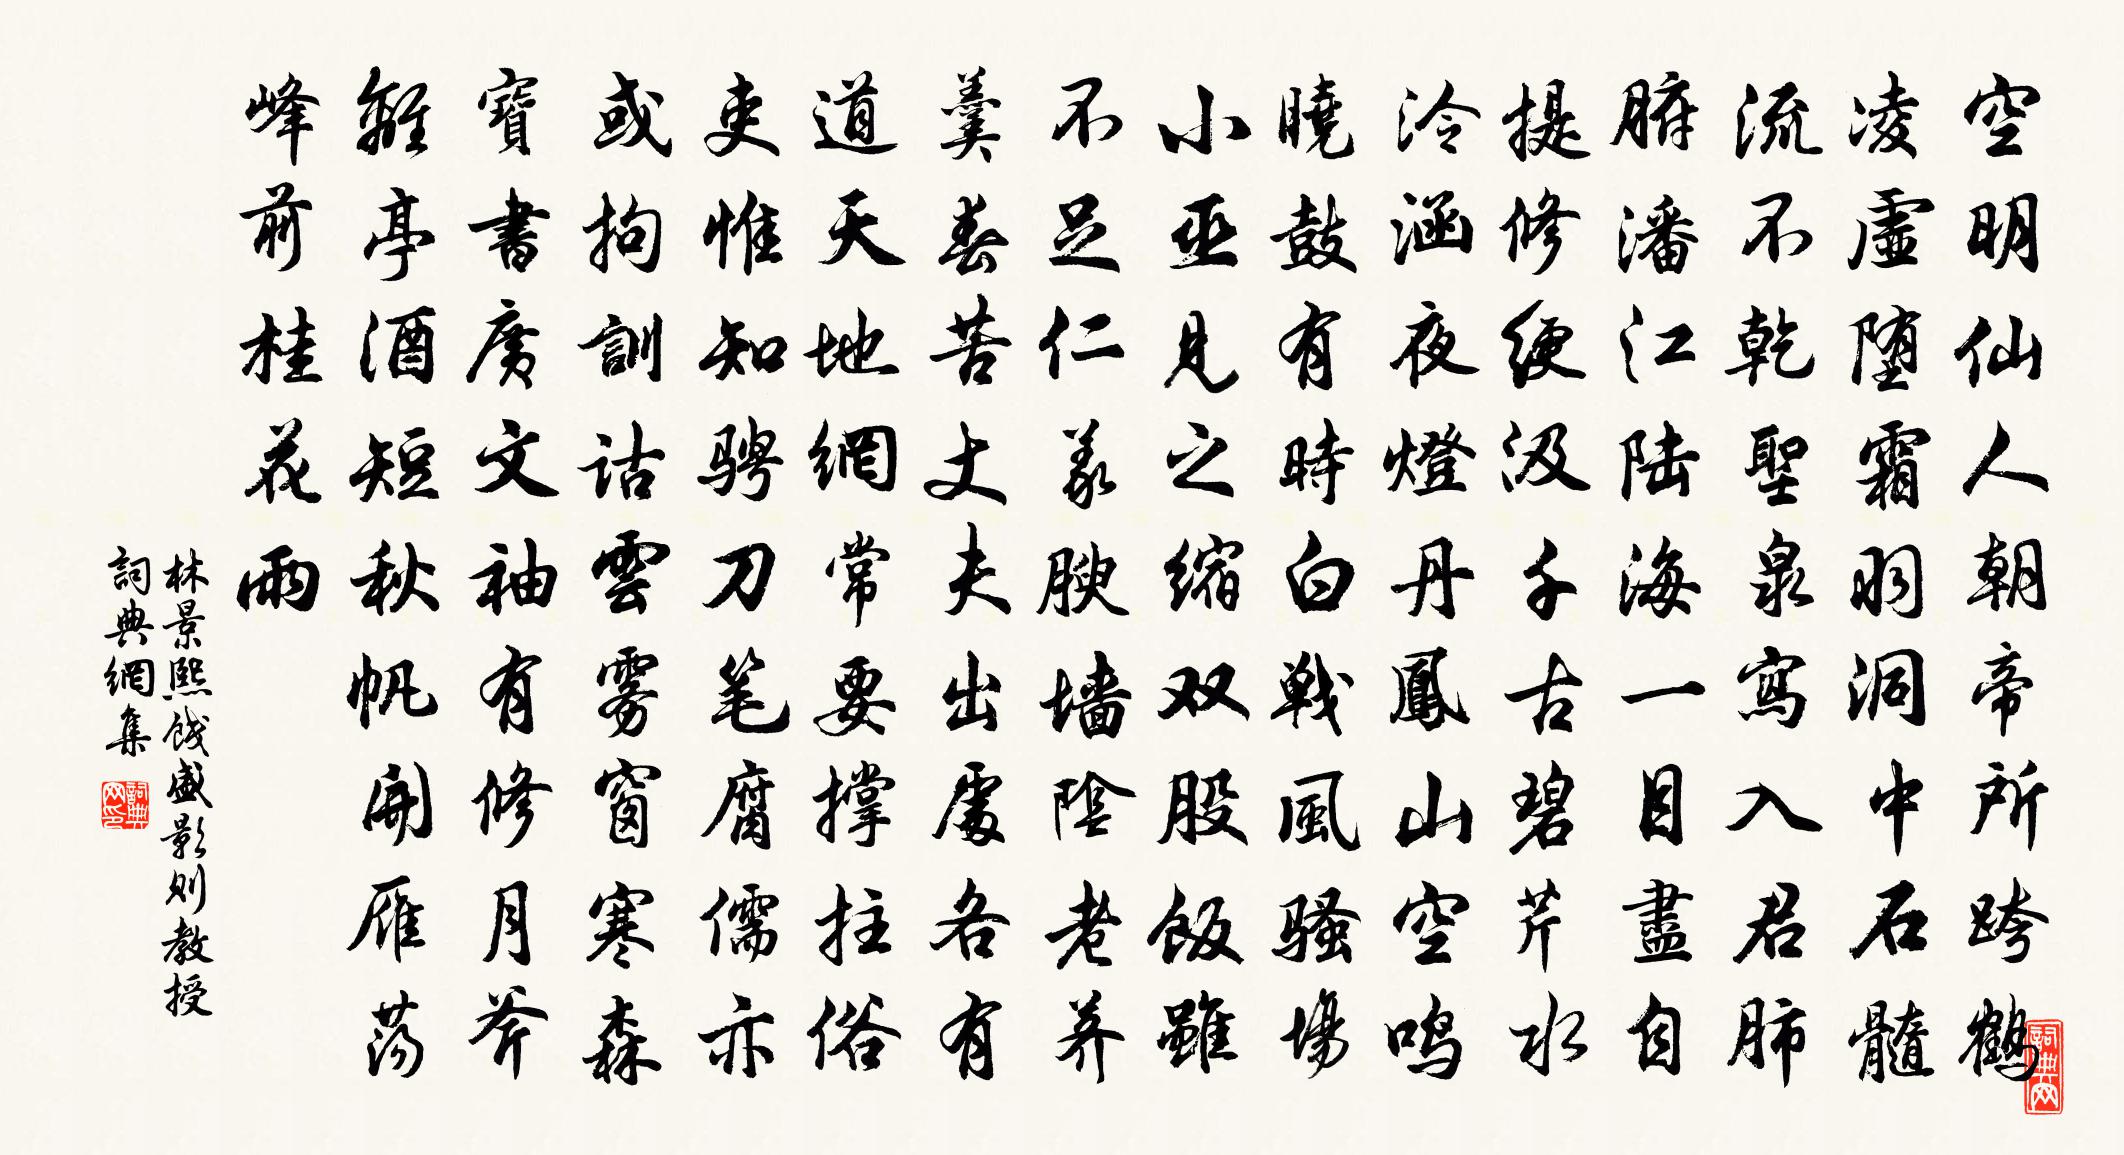 空明仙人朝帝所跨鶴
凌虛堕霜羽洞中石髓
流不乾聖泉寫入君肺
腑潘江陆海一目盡自
提修绠汲千古碧芹水
泠涵夜燈丹鳳山空鸣
曉鼓有時白戰風騷場
小巫見之缩双股飯雖
不足仁義腴墙陰老荠
羹春苦丈夫出處各有
道天地網常要撑拄俗
吏惟知骋刀笔腐儒亦
或拘訓诂雲雾窗寒森
寶書廣文袖有修月斧
離亭酒短秋帆開雁荡
峰前桂花雨
林景熙餞盛影则教授
詞典網集
詞典网印
詞典网